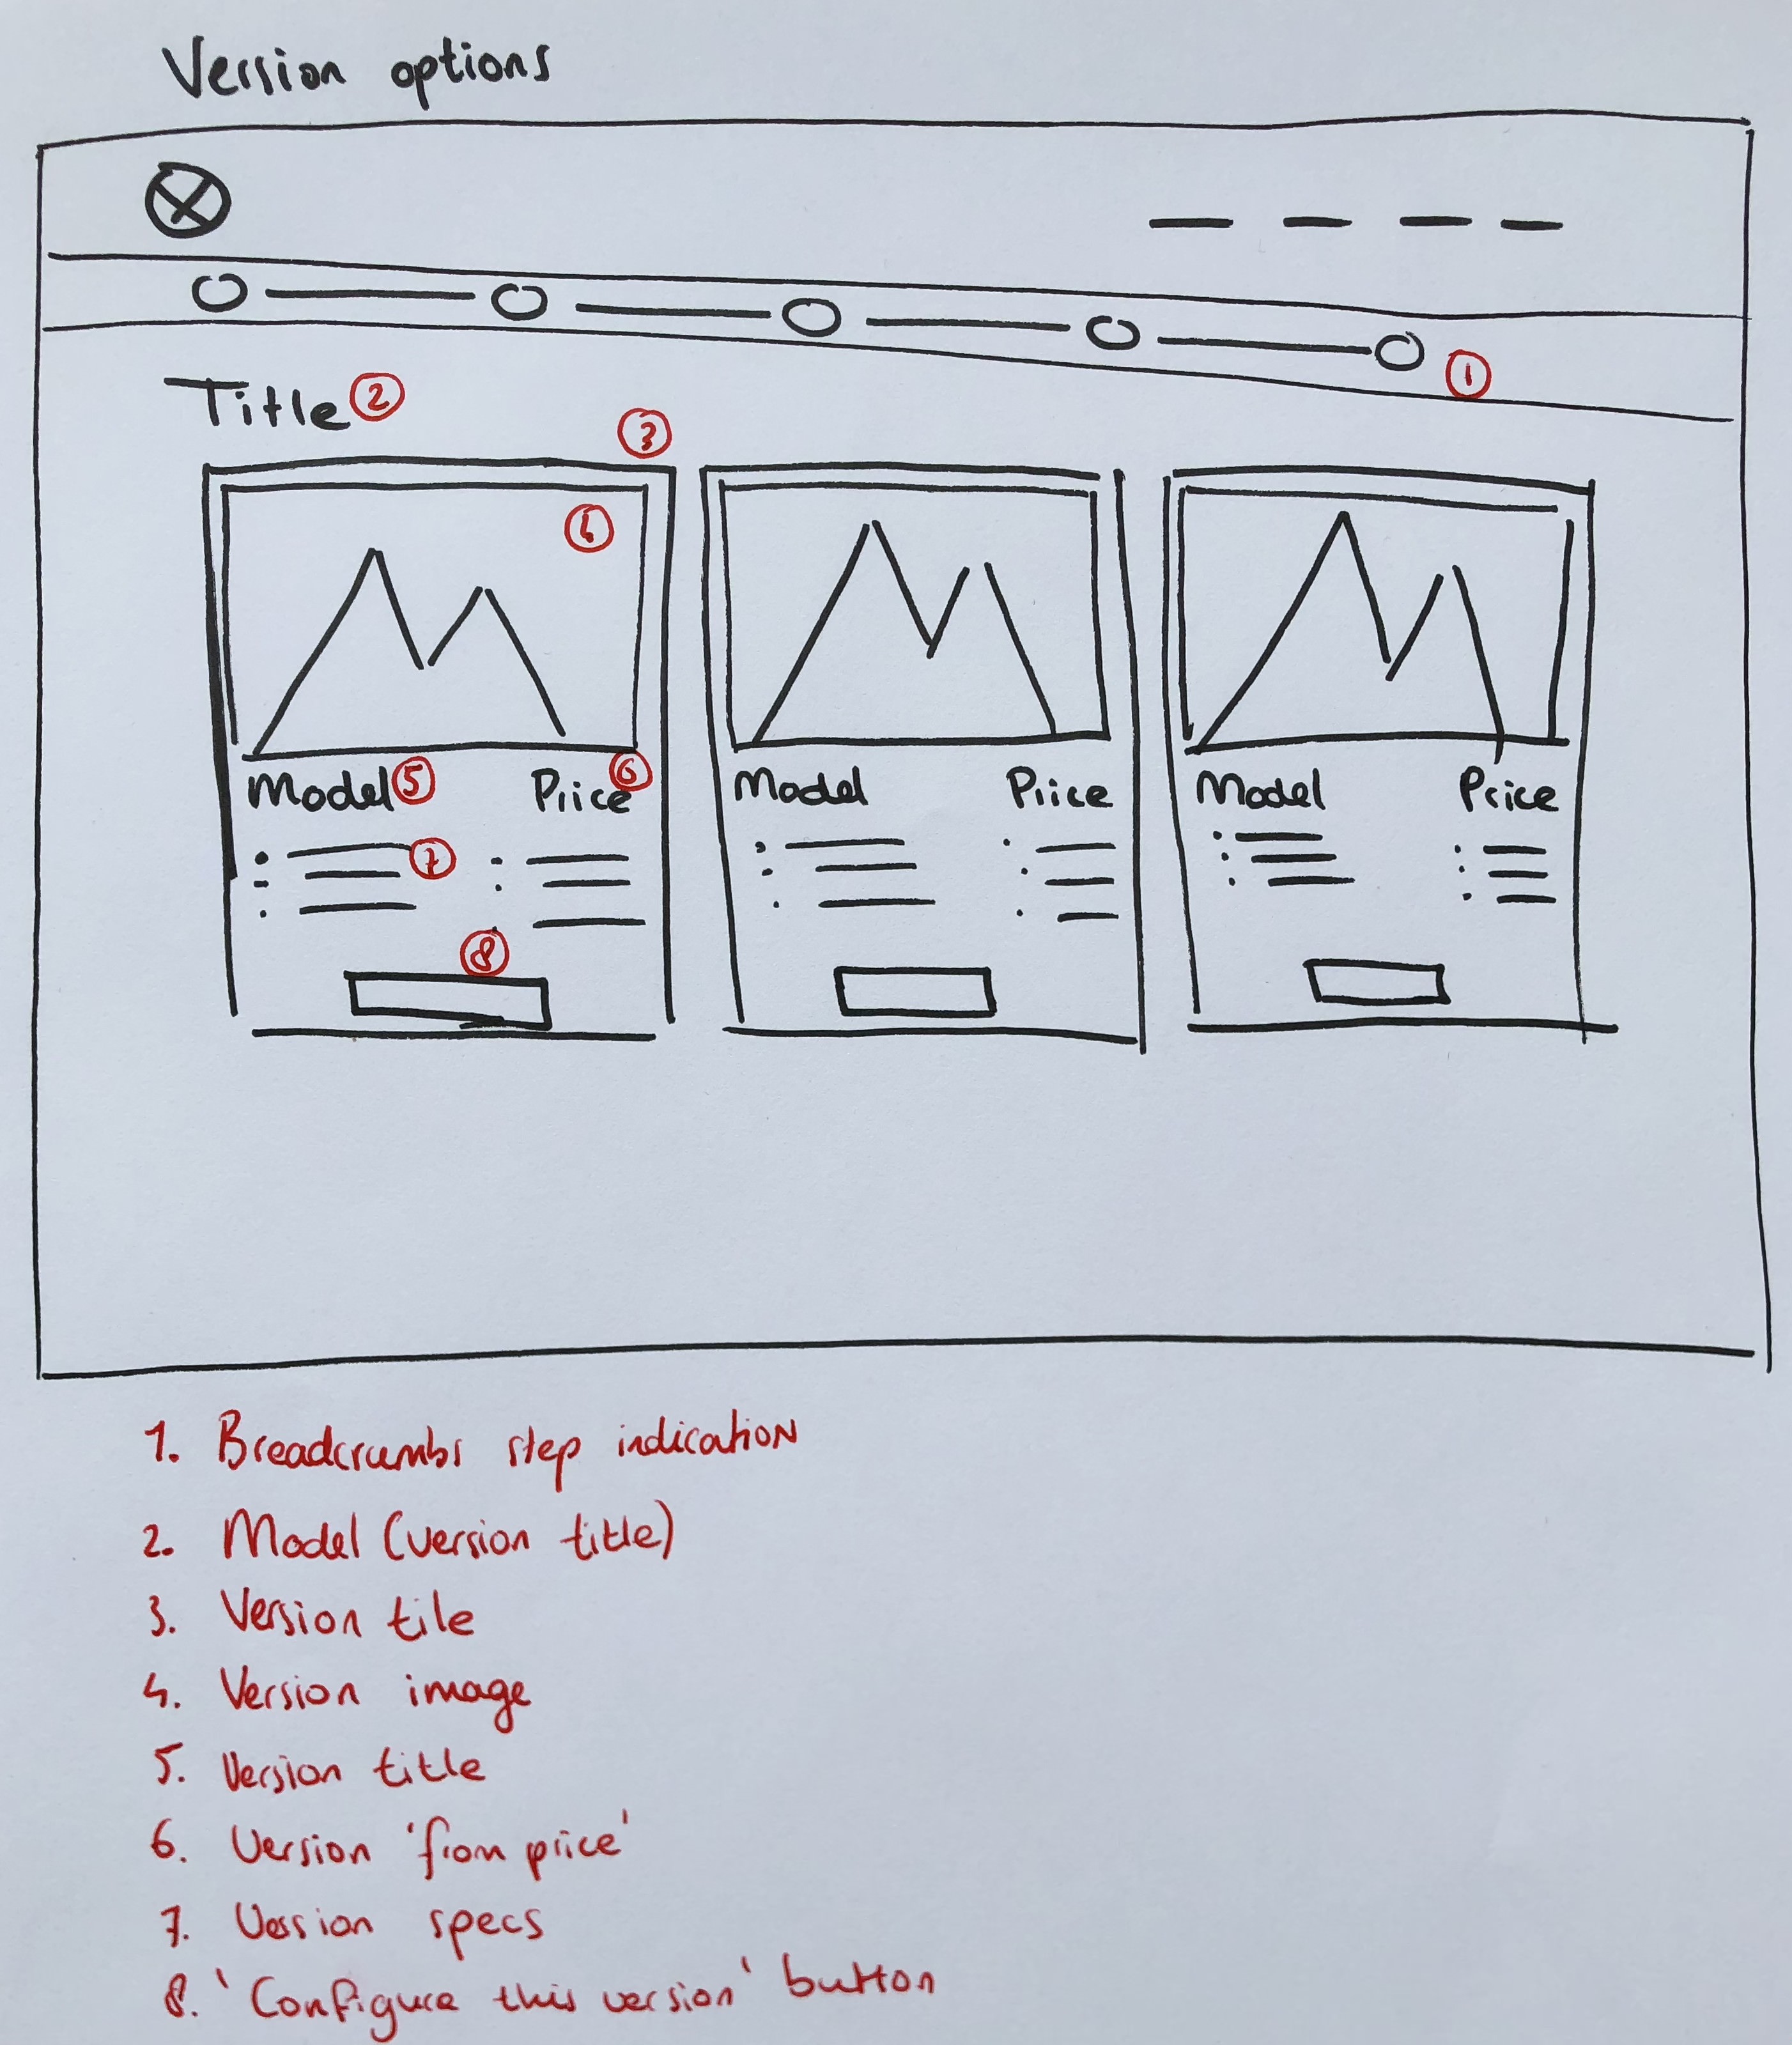 Version options
1
Title 2
3
4
Model 5 Price 6 Model Price Model Price
7
8
1. Breadcrumbs step indication
2. Model (version title)
3. Version tile
4. Version image
5. Version title
6. Version 'from price'
7. Version specs
8. 'Configure this version' button